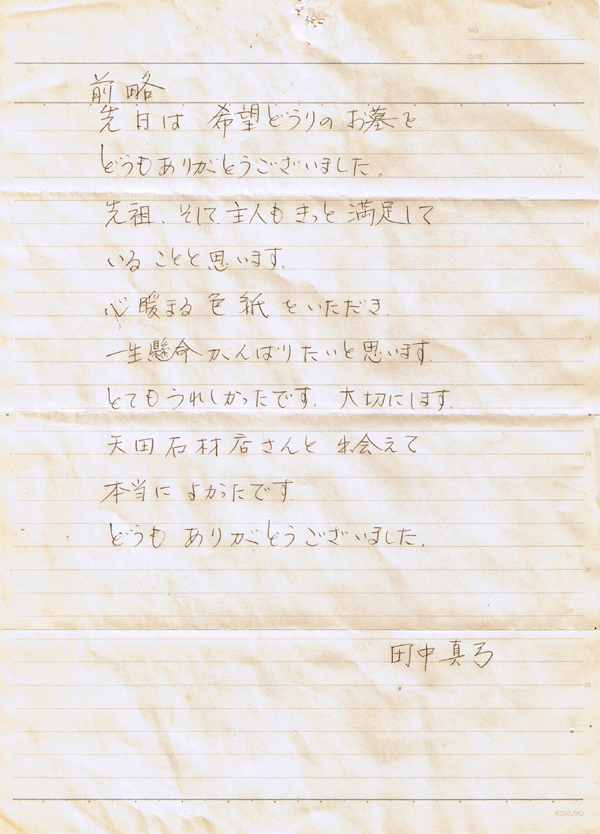 NO.
DATE
前略
先日は 希望どうりの お墓を
どうもありがとうございました。
先祖、そして、主人も きっと 満足して
いることと思います。
心暖まる 色紙 をいただき、
一生懸命 がんばりたいと思います。
とてもうれしかったです。大切にします。
矢田石材店さんと 出会えて
本当に よかったです
どうも ありがとうございました。
田中真弓
KOKUYO